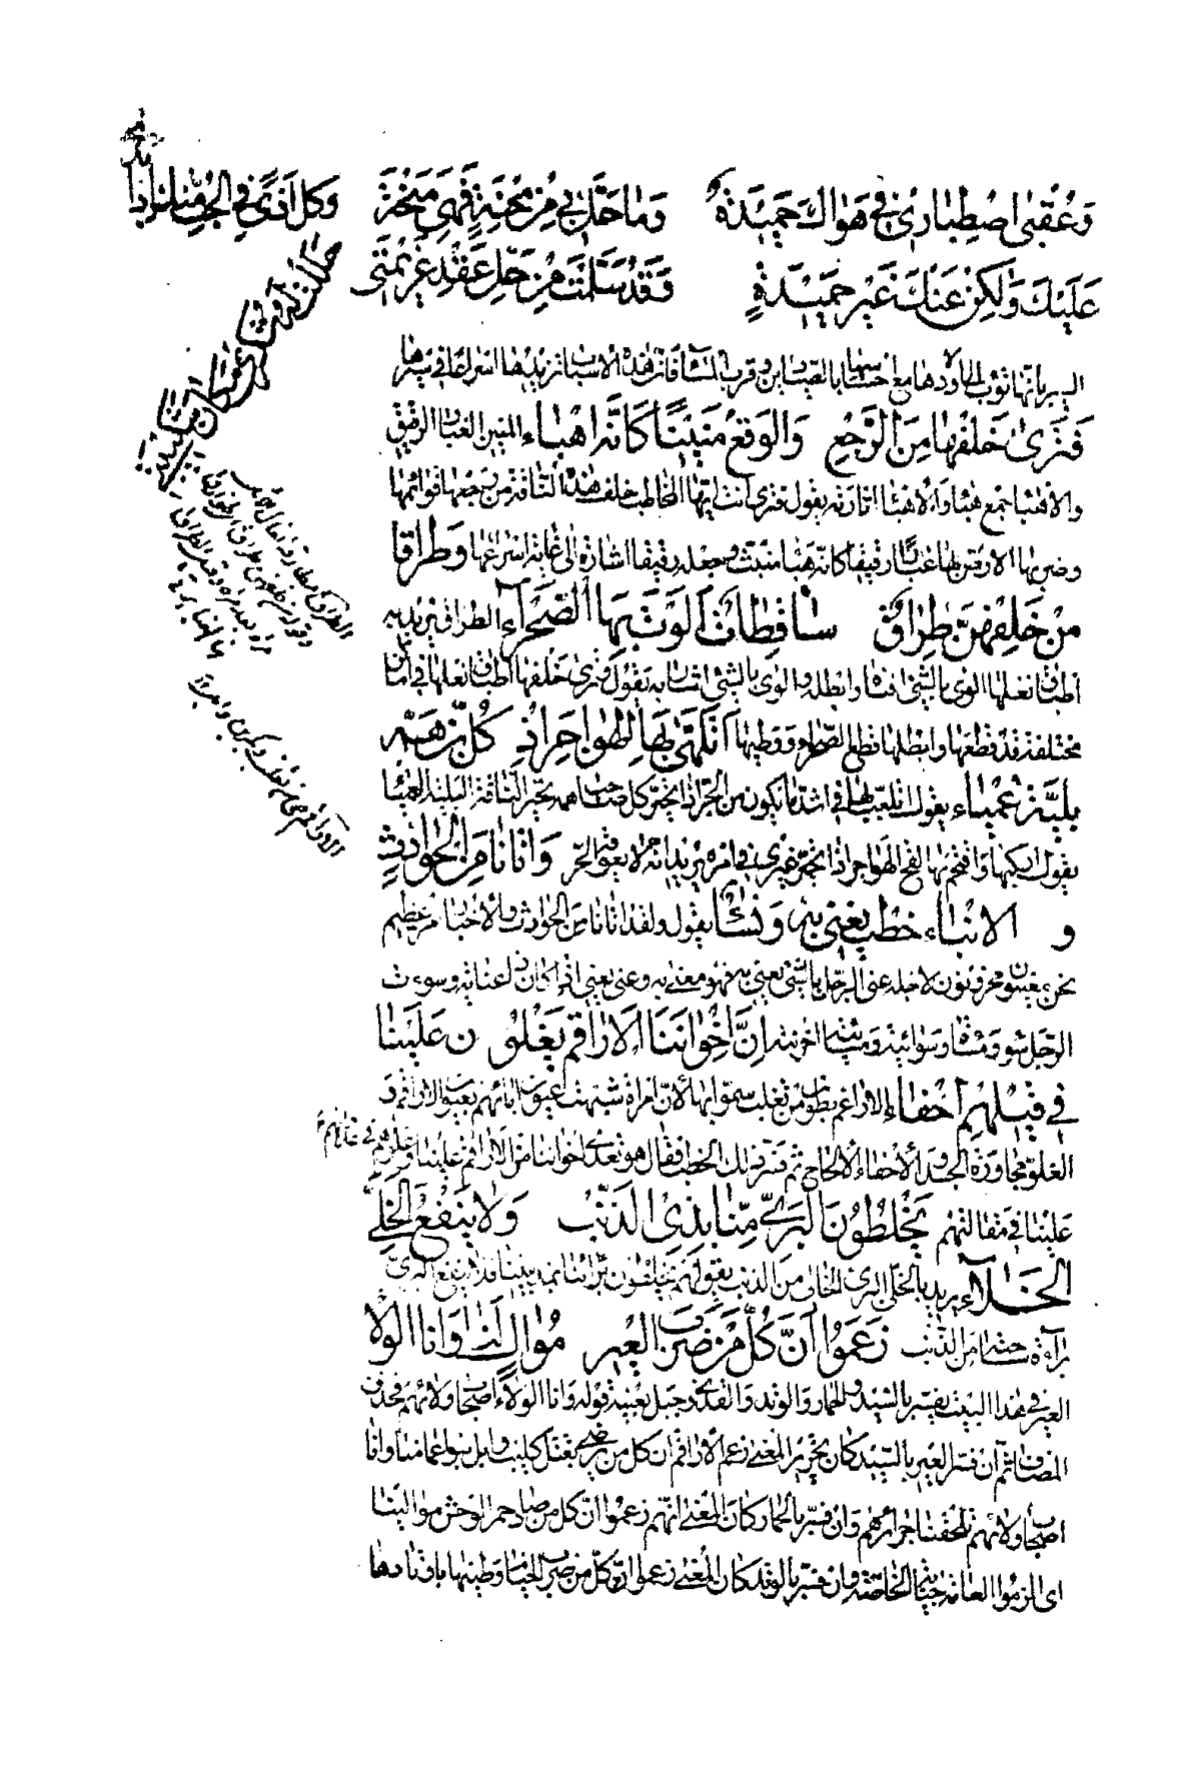 وَعُقْبَى اصْطِبَارِي فِي هَوَاكَ حَمِيدَةٌ وَمَا حَلَّ بِي مِنْ مِحْنَةٍ فَهِيَ مِنْحَةٌ وَكُلُّ أَذًى فِي الْحُبِّ مِنْكَ إِذَا بَدَا
عَلَيْكَ وَلَكِنْ عَنْكَ غَيْرُ حَمِيدَةٍ وَقَدْ سَلِمَتْ مِنْ حَلِّ عَقْدٍ عَزِيمَتِي
السير بانها تؤب الى اولادها مع احساسها بالقصاب وقرب المساء فان هذه الاسباب تزيدها اسراعا في سيرها
فَتَرَى خَلْفَهَا مِنَ الرَّجْعِ وَالوَقْعِ مَنِينًا كَأَنَّهُ اهْبَاءُ المنين الغبار الرقيق
والاهباء جمع هباء والاهباء اثارته يقول فترى انت ايها المخاطب خلف هذه الناقة من رجعها قوائمها
وضربها الارض بها غبارا رقيقا كانه هباء منبث وجعله رقيقا اشارة الى غاية اسراعها وَطِرَاقًا
مِنْ خَلْفِهِنَّ طِرَاقٌ سَاقِطَاتٌ أَلْوَتْ بِهَا الصَّحْرَاءُ الطراق يريد به
اطباق نعلها الوى بالشئ افناه وابطله والوى بالشئ اشار به يقول فترى خلفها اطباق نعلها في اماكن
مختلفة قد قطعها وابطلها قطع الصحراء ووطيها أَتَلَهَّى بِهَا الْهَوَاجِرَ إِذْ كُلُّ ابْنِ هَمٍّ
بَلِيَّةٌ عَمْيَاءُ يقول اتلعب بها في اشد ما يكون من الحر اذا تحير كل صاحب هم تحير الناقة البلية العمياء
يقول اركبها واقتحم بها لفح الهواجر اذا تحير غيري في امره يريد انه لا يعوقه الحر وَأَتَانَا مِنَ الْحَوَادِثِ
وَالأَنْبَاءِ خَطْبٌ نُعْنَى بِهِ وَنُسَاءُ يقول ولقد اتانا من الحوادث والاخبار امر عظيم
نحن معنيون محزونون لاجله عنى الرجل بالشئ يعنى به فهو معنى به وعنى يعنى اذا كان ذا عناية وسوءت
الرجل سوء ومساءة وسوائية ومسائية احزنته إِنَّ إِخْوَانَنَا الأَرَاقِمَ يَغْلُونَ عَلَيْنَا
فِي قِيلِهِمْ إِحْفَاءُ الاراقم بطون من تغلب سموا بها لان امراة شبهت عيون ابائهم بعيون الاراقم و
الغلو مجاوزة الحد والاحفاء الالحاح ثم فسر ذلك الخطب فقال هو تعدى اخواننا من الاراقم علينا وغلوهم في غايتهم
علينا في مقالتهم يَخْلِطُونَ الْبَرِيَّ مِنَّا بِذِي الذَّنْبِ وَلَا يَنْفَعُ الْخَلِيَّ
الْخَلَاءُ يريد بالخلي البرئ الخالي من الذنب يقول هم يخلطون برءاءنا بمذنبينا فلا ينفع البرئ
براءة ساحته من الذنب زَعَمُوا أَنَّ كُلَّ مَنْ ضَرَبَ الْعِيرَ مُوَالٍ لَنَا وَأَنَّا الْوَلَاءُ
العير في هذا البيت يفسر بالسيد والحمار والوتد والقذى وجبل بعينه قوله وانا الولاء اصحاب ولائهم فحذف
المضاف ثم ان فسر العير بالسيد كان تحرير المعنى زعم الاراقم ان كل من يرضى بقتل كليب وايل بنو اعمامنا وانا
اصحاب ولائهم تلحقنا جرائرهم وان فسر بالحمار كان المعنى انهم زعموا ان كل من صاد حمر الوحش موالينا
اى الزموا العامة جناية الخاصة وان فسر بالوتد كان المعنى زعموا ان كل من ضرب الخيام وطنبها باوتادها